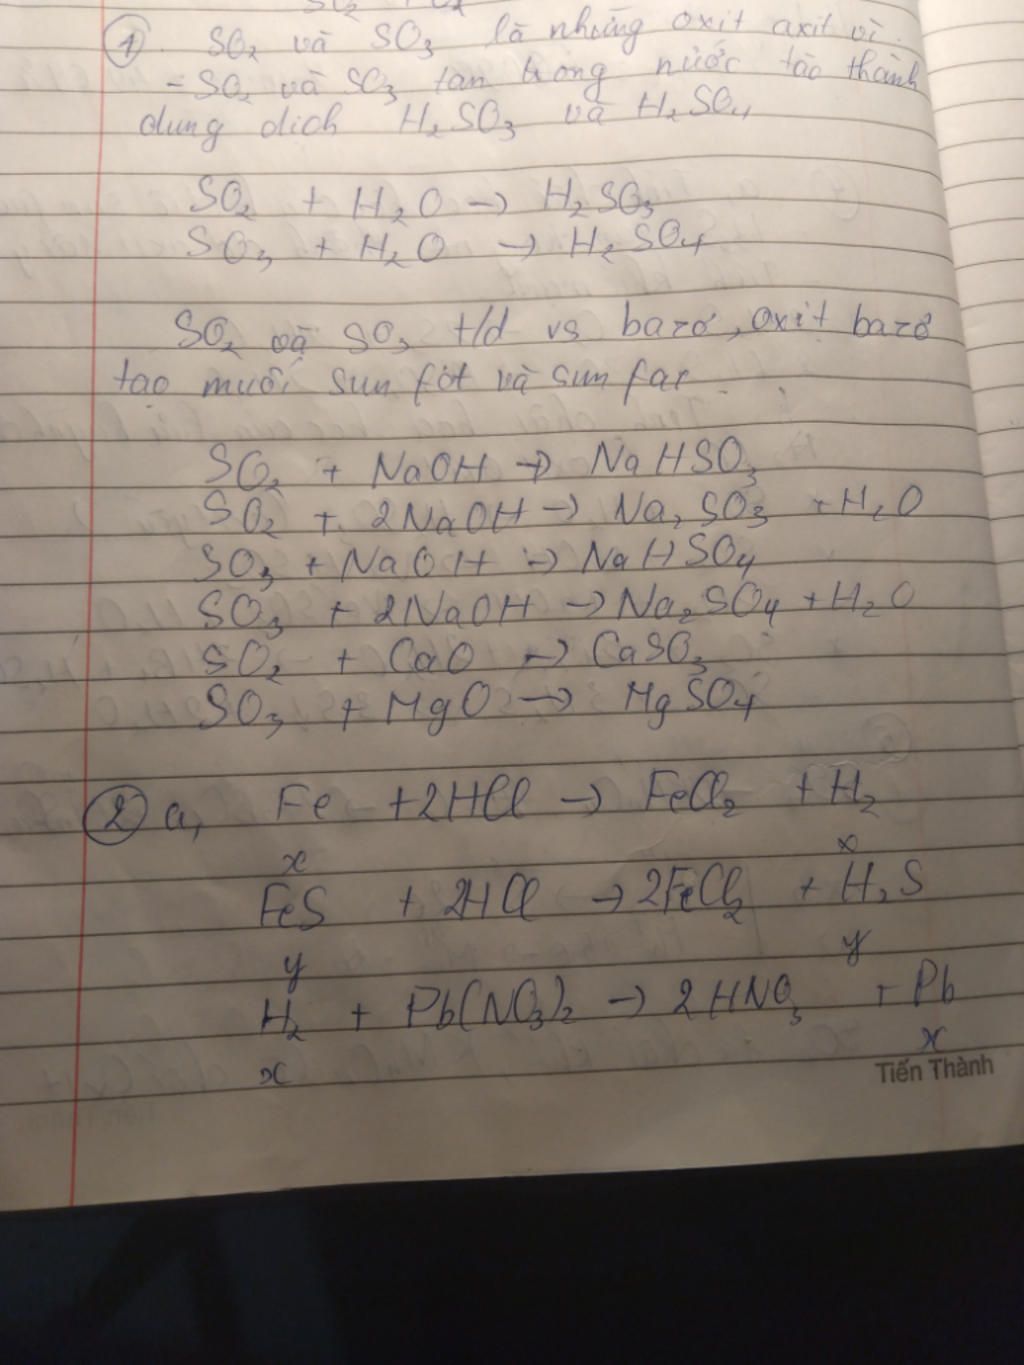 ① SO₂ và SO₃ là những oxit axit vì.
- SO₂ và SO₃ tan trong nước tạo thành
dung dịch H₂SO₃ và H₂SO₄
SO₂ + H₂O → H₂SO₃
SO₃ + H₂O → H₂SO₄
SO₂ và SO₃ t/d vs bazơ, oxit bazơ
tạo muối sun fit và sun fat
SO₂ + NaOH → NaHSO₃
SO₂ + 2NaOH → Na₂SO₃ + H₂O
SO₃ + NaOH → NaHSO₄
SO₃ + 2NaOH → Na₂SO₄ + H₂O
SO₂ + CaO → CaSO₃
SO₃ + MgO → MgSO₄
② a, Fe + 2HCl → FeCl₂ + H₂
x x
FeS + 2HCl → 2FeCl₂ + H₂S
y y
H₂ + Pb(NO₃)₂ → 2HNO₃ + Pb
x x
Tiến Thành